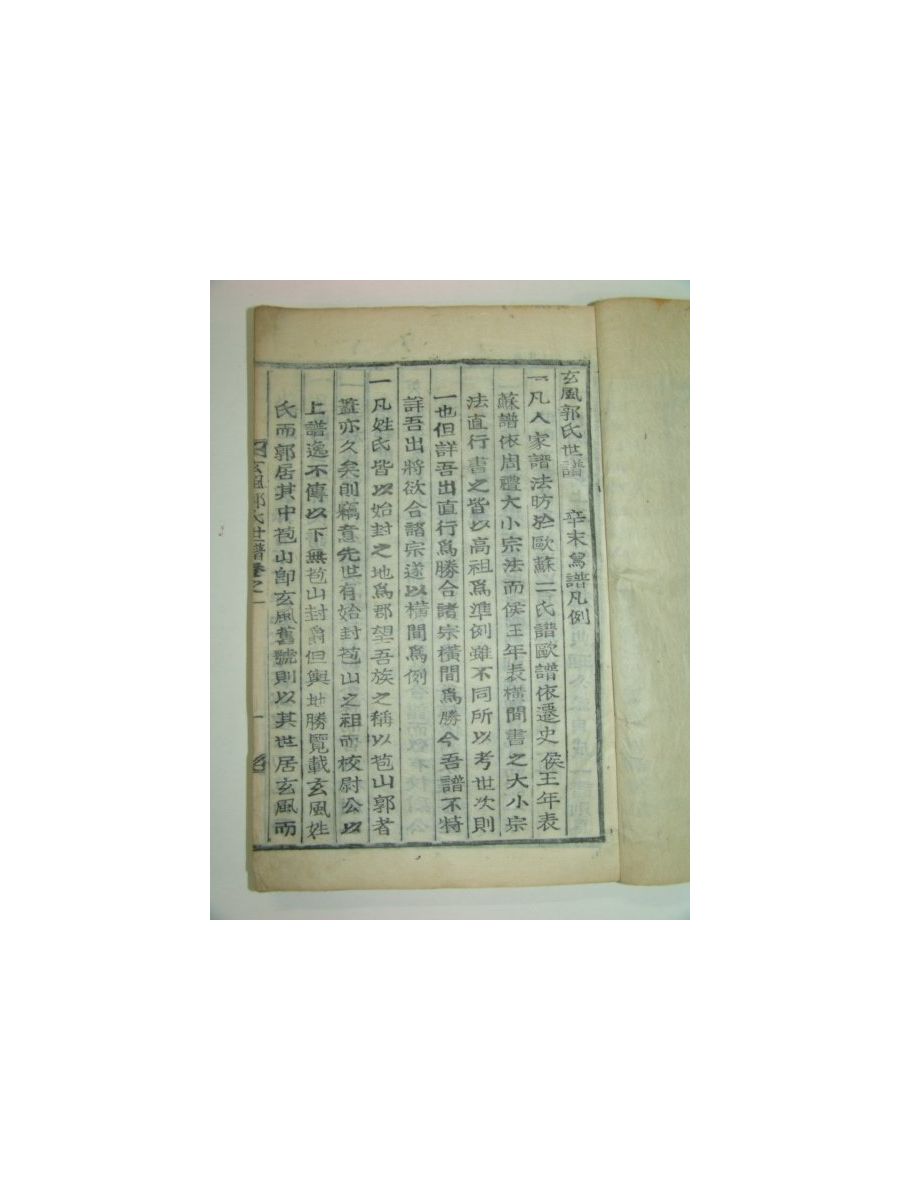 玄風郭氏世譜 辛未爲譜凡例
一凡人家譜法昉於歐蘇二氏譜歐譜依遷史侯王年表
蘇譜依周禮大小宗法而侯王年表橫間書之大小宗
法直行書之皆以高祖爲準例雖不同所以考世次則
一也但詳吾出直行爲勝合諸宗橫間爲勝今吾譜不特
詳吾出將欲合諸宗遂以橫間爲例
一凡姓氏皆以始封之地爲郡望吾族之稱以苞山郭者
蓋亦久矣則竊意先世有始封苞山之祖而校尉公以
上譜逸不傳以下無苞山封爵但輿地勝覽載玄風姓
氏而郭居其中苞山卽玄風舊號則以其世居玄風而
玄風郭氏世譜卷之一
一